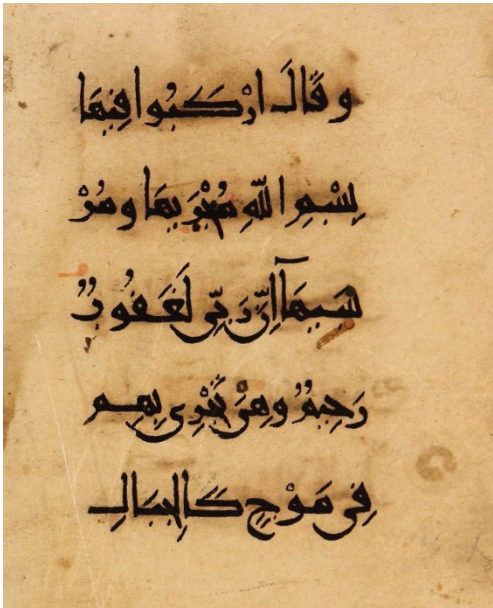 وقَالَ ارْكَبُوا فِيهَا
بِسْمِ اللَّهِ مُجْرَيهَا ومُرْ
سَيهَآ اِنَّ رَبِّى لَغَفُورٌ
رَحِيمٌ وهِىَ تَجْرِى بِهِم
فِى مَوْجٍ كَالجِبَالِ